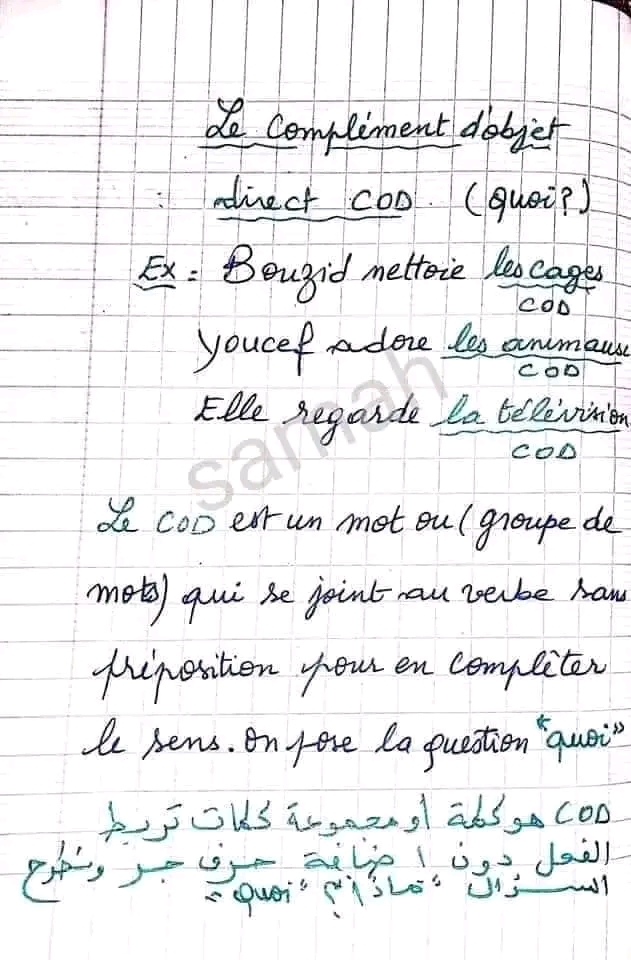 Le Complément d'objet
: direct COD. (quoi?)
Ex: Bouzid nettoie les cages
COD
Youcef adore les animaux
COD
Elle regarde la télévision
COD
samah
Le COD est un mot ou (groupe de
mots) qui se joint au verbe sans
préposition pour en complèter
le sens. On pose la question "quoi"
COD هو كلمة أو مجموعة كلمات تربط
الفعل دون إضافة حرف جر ونطرح
السؤال "ماذا؟" "quoi"